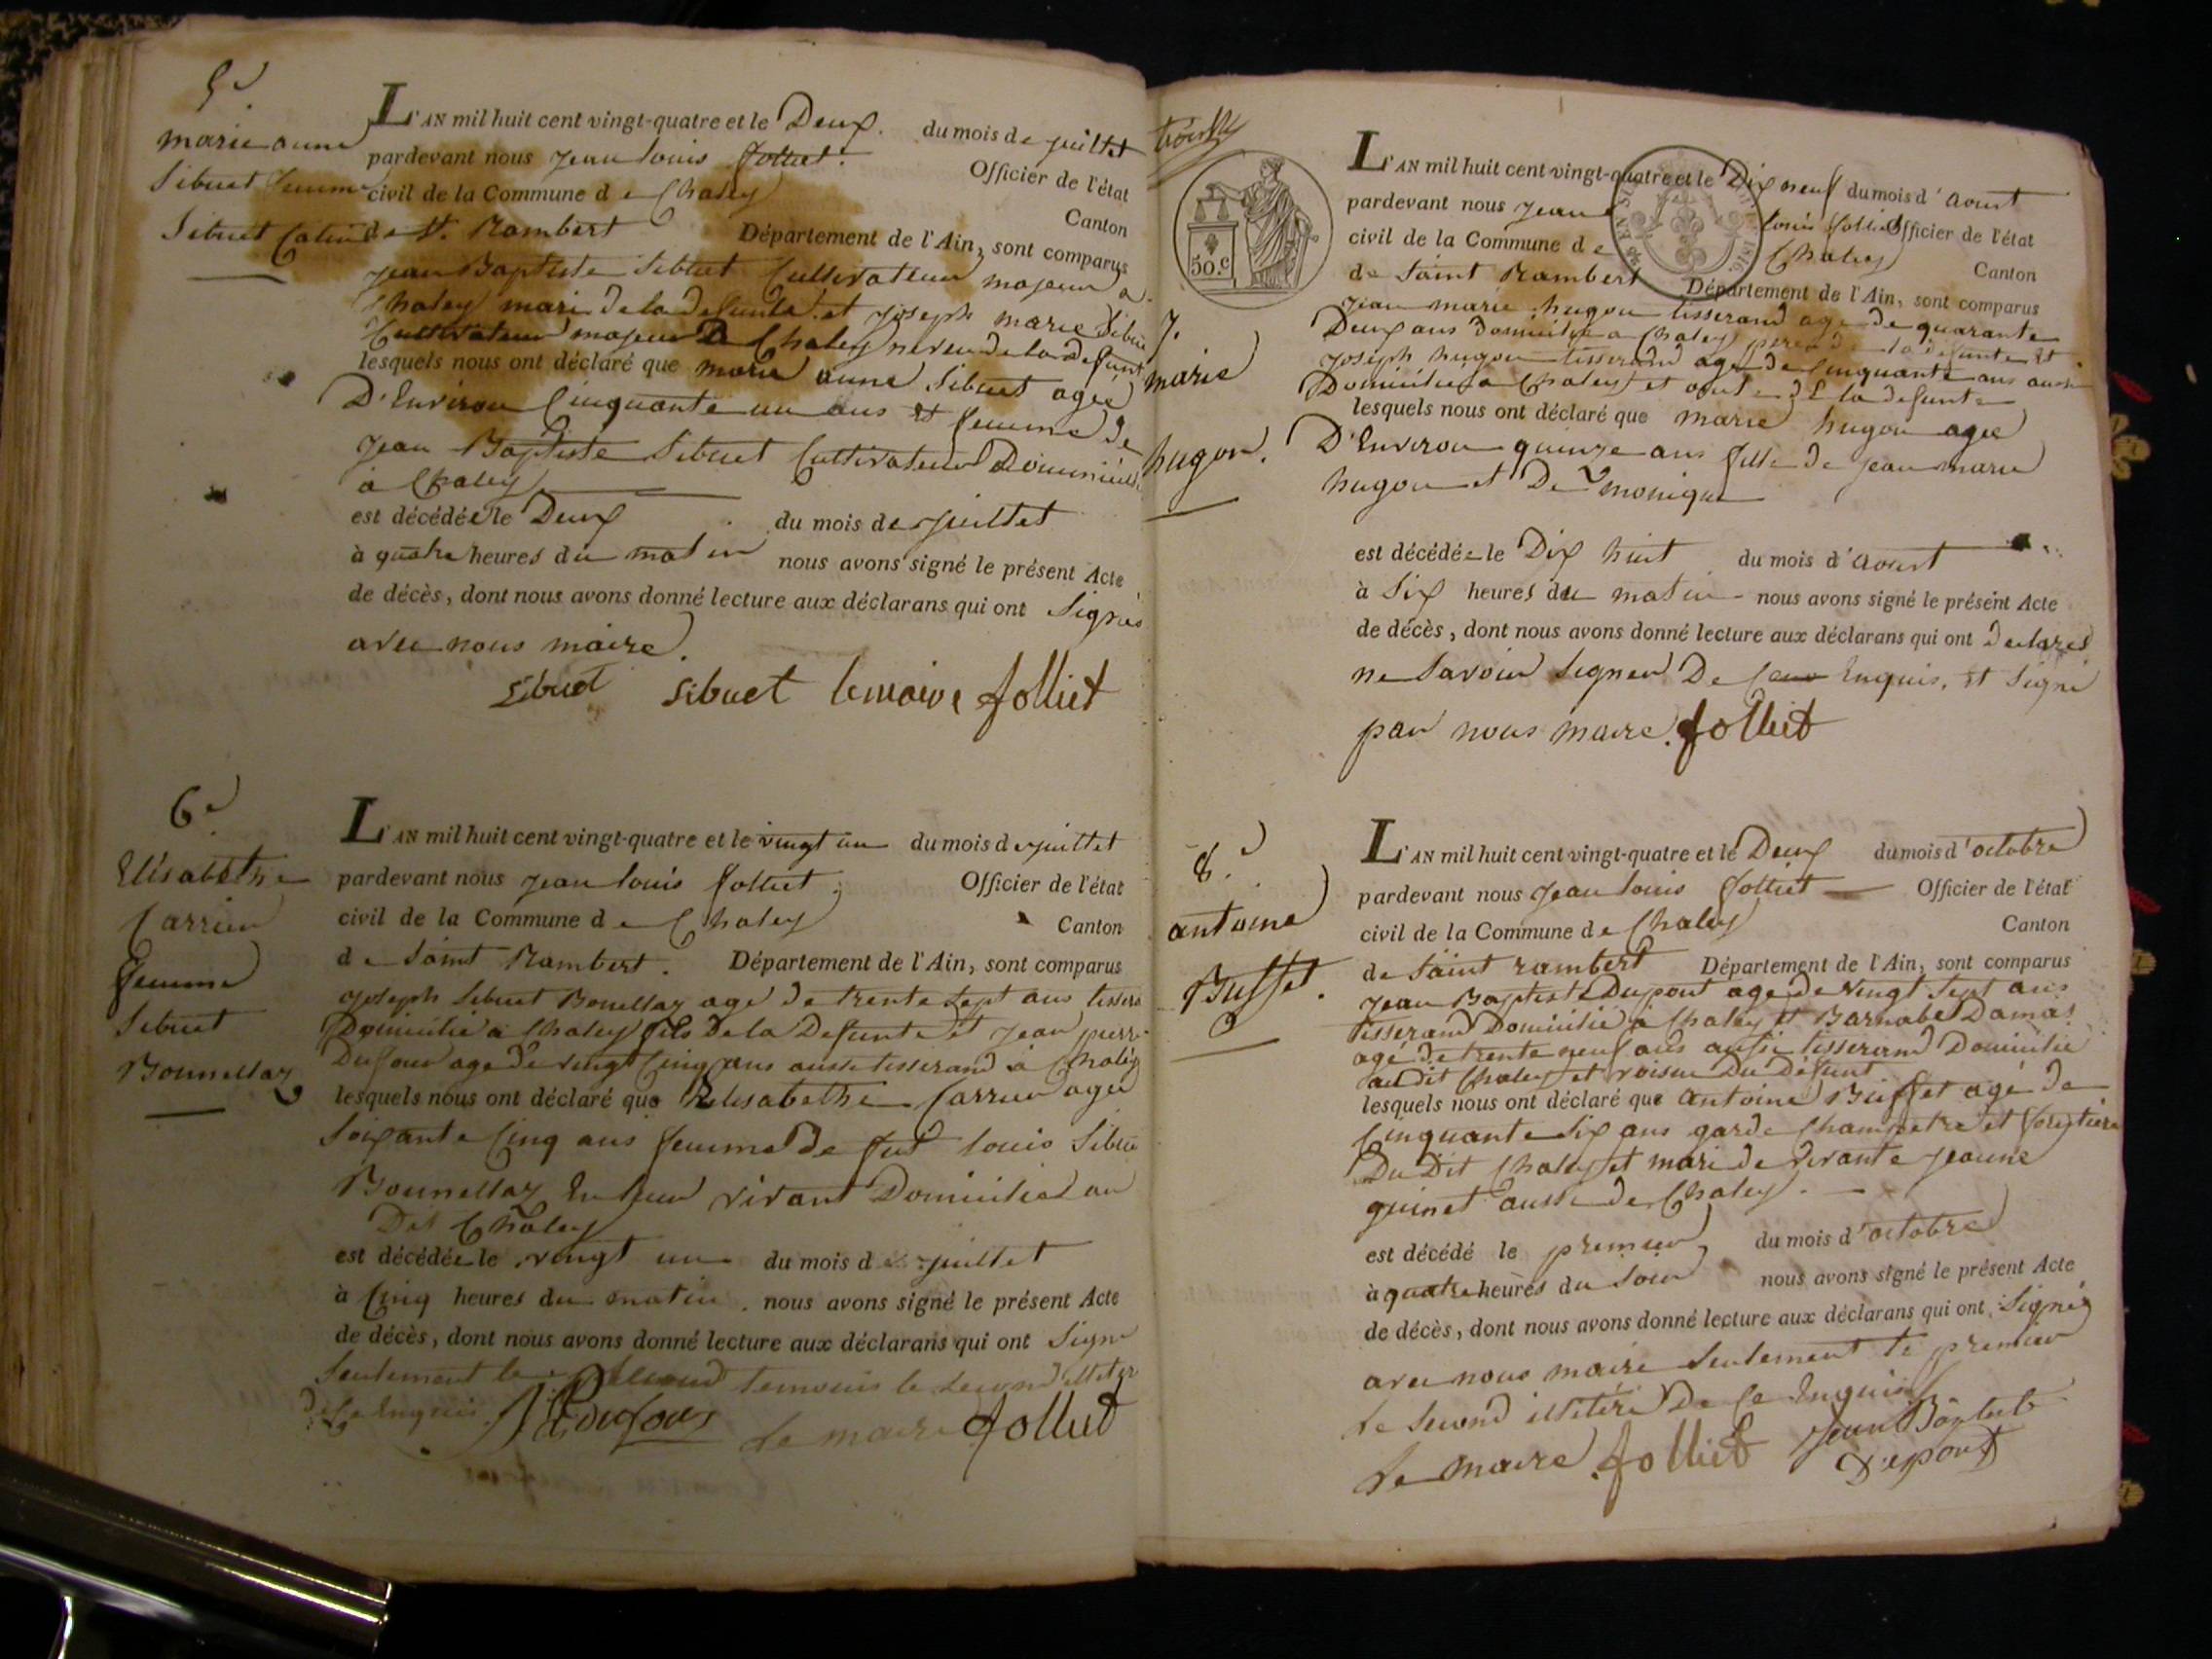 5e.
marie anne
Sibuet femme
Sibuet
L'AN mil huit cent vingt-quatre et le Deux. du mois de juillet
pardevant nous jean louis folliet. Officier de l'état
civil de la Commune de Chaley Canton
de St. Rambert Département de l'Ain, sont comparus
jean Baptiste Sibuet Cultivateur majeur a
Chaley mari de la defunte. et joseph marie Sibuet
Cultivateur majeur De Chaley neveu de la defunte
lesquels nous ont déclaré que marie anne Sibuet agée
D'Environ Cinquante un ans et femme de
jean Baptiste Sibuet Cultivateur Domicilié
à Chaley
est décédée le Deux du mois de juillet
à quatre heures du matin nous avons signé le présent Acte
de décès, dont nous avons donné lecture aux déclarans qui ont Signés
avec nous maire.
sibuet sibuet lemaire folliet
6e.
Elisabethe
Carrier
femme
Sibuet
Bonnellaz
L'AN mil huit cent vingt-quatre et le vingt un du mois de juillet
pardevant nous jean louis folliet. Officier de l'état
civil de la Commune de Chaley Canton
de Saint Rambert. Département de l'Ain, sont comparus
joseph Sibuet Bonellaz agé de trente Sept ans tissera
Domicilié à Chaley fils De la Defunte et jean pierre
Dufour agé De vingt Cinq ans aussi tisserand à Chaley
lesquels nous ont déclaré que Elisabethe Carrier agée
Soixante Cinq ans femme De fut louis Sibuet
Bonnellaz En Leur vivant Domiciliés au
Dit Chaley
est décédée le vingt un du mois de juillet
à Cinq heures du matin. nous avons signé le présent Acte
de décès, dont nous avons donné lecture aux déclarans qui ont Signé
Seulement le Second temouis le second
De Ce Enquis. dufour Le maire folliet
50.c
7.
marie
hugon.
L'AN mil huit cent vingt-quatre et le Dix neuf du mois d'aout
pardevant nous jean louis folliet Officier de l'état
civil de la Commune de Chaley Canton
de Saint Rambert Département de l'Ain, sont comparus
jean marie hugon tisserand agé de quarante
Deux ans domicilié a Chaley pere de la defunte et
joseph hugon tisserand agé de Cinquante ans aussi
Domicilié a Chaley et de la defunte
lesquels nous ont déclaré que marie hugon agée
D'Environ quinze ans fille de jean marie
hugon et De monique
est décédée le Dix huit du mois d'aout
à Six heures du matin nous avons signé le présent Acte
de décès, dont nous avons donné lecture aux déclarans qui ont Declarés
ne Savoir Signer De Ceux Enquis, et Signé
par nous maire. folliet
8e.
antoine
Buffet.
L'AN mil huit cent vingt-quatre et le Deux du mois d'octobre
pardevant nous jean louis folliet Officier de l'état
civil de la Commune de Chaley Canton
de Saint rambert Département de l'Ain, sont comparus
jean Baptiste Dupont agé de vingt Sept ans
tisserand Domicilié à Chaley et Barnabé Damas
agé de trente neuf ans aussi tisserand Domicilié
au Dit Chaley et voisin Du Defunt
lesquels nous ont déclaré que antoine Buffet agé de
Cinquante Six ans garde Champetre et forestiere
Du Dit Chaley et mari de vivante jeanne
guinet aussi de Chaley.
est décédé le premier du mois d'octobre
à quatre heures du Soir nous avons signé le présent Acte
de décès, dont nous avons donné lecture aux déclarans qui ont Signés
avec nous maire Seulement le premier
Le Second De Ce Enquis
Le maire folliet jean Baptiste
Dupont